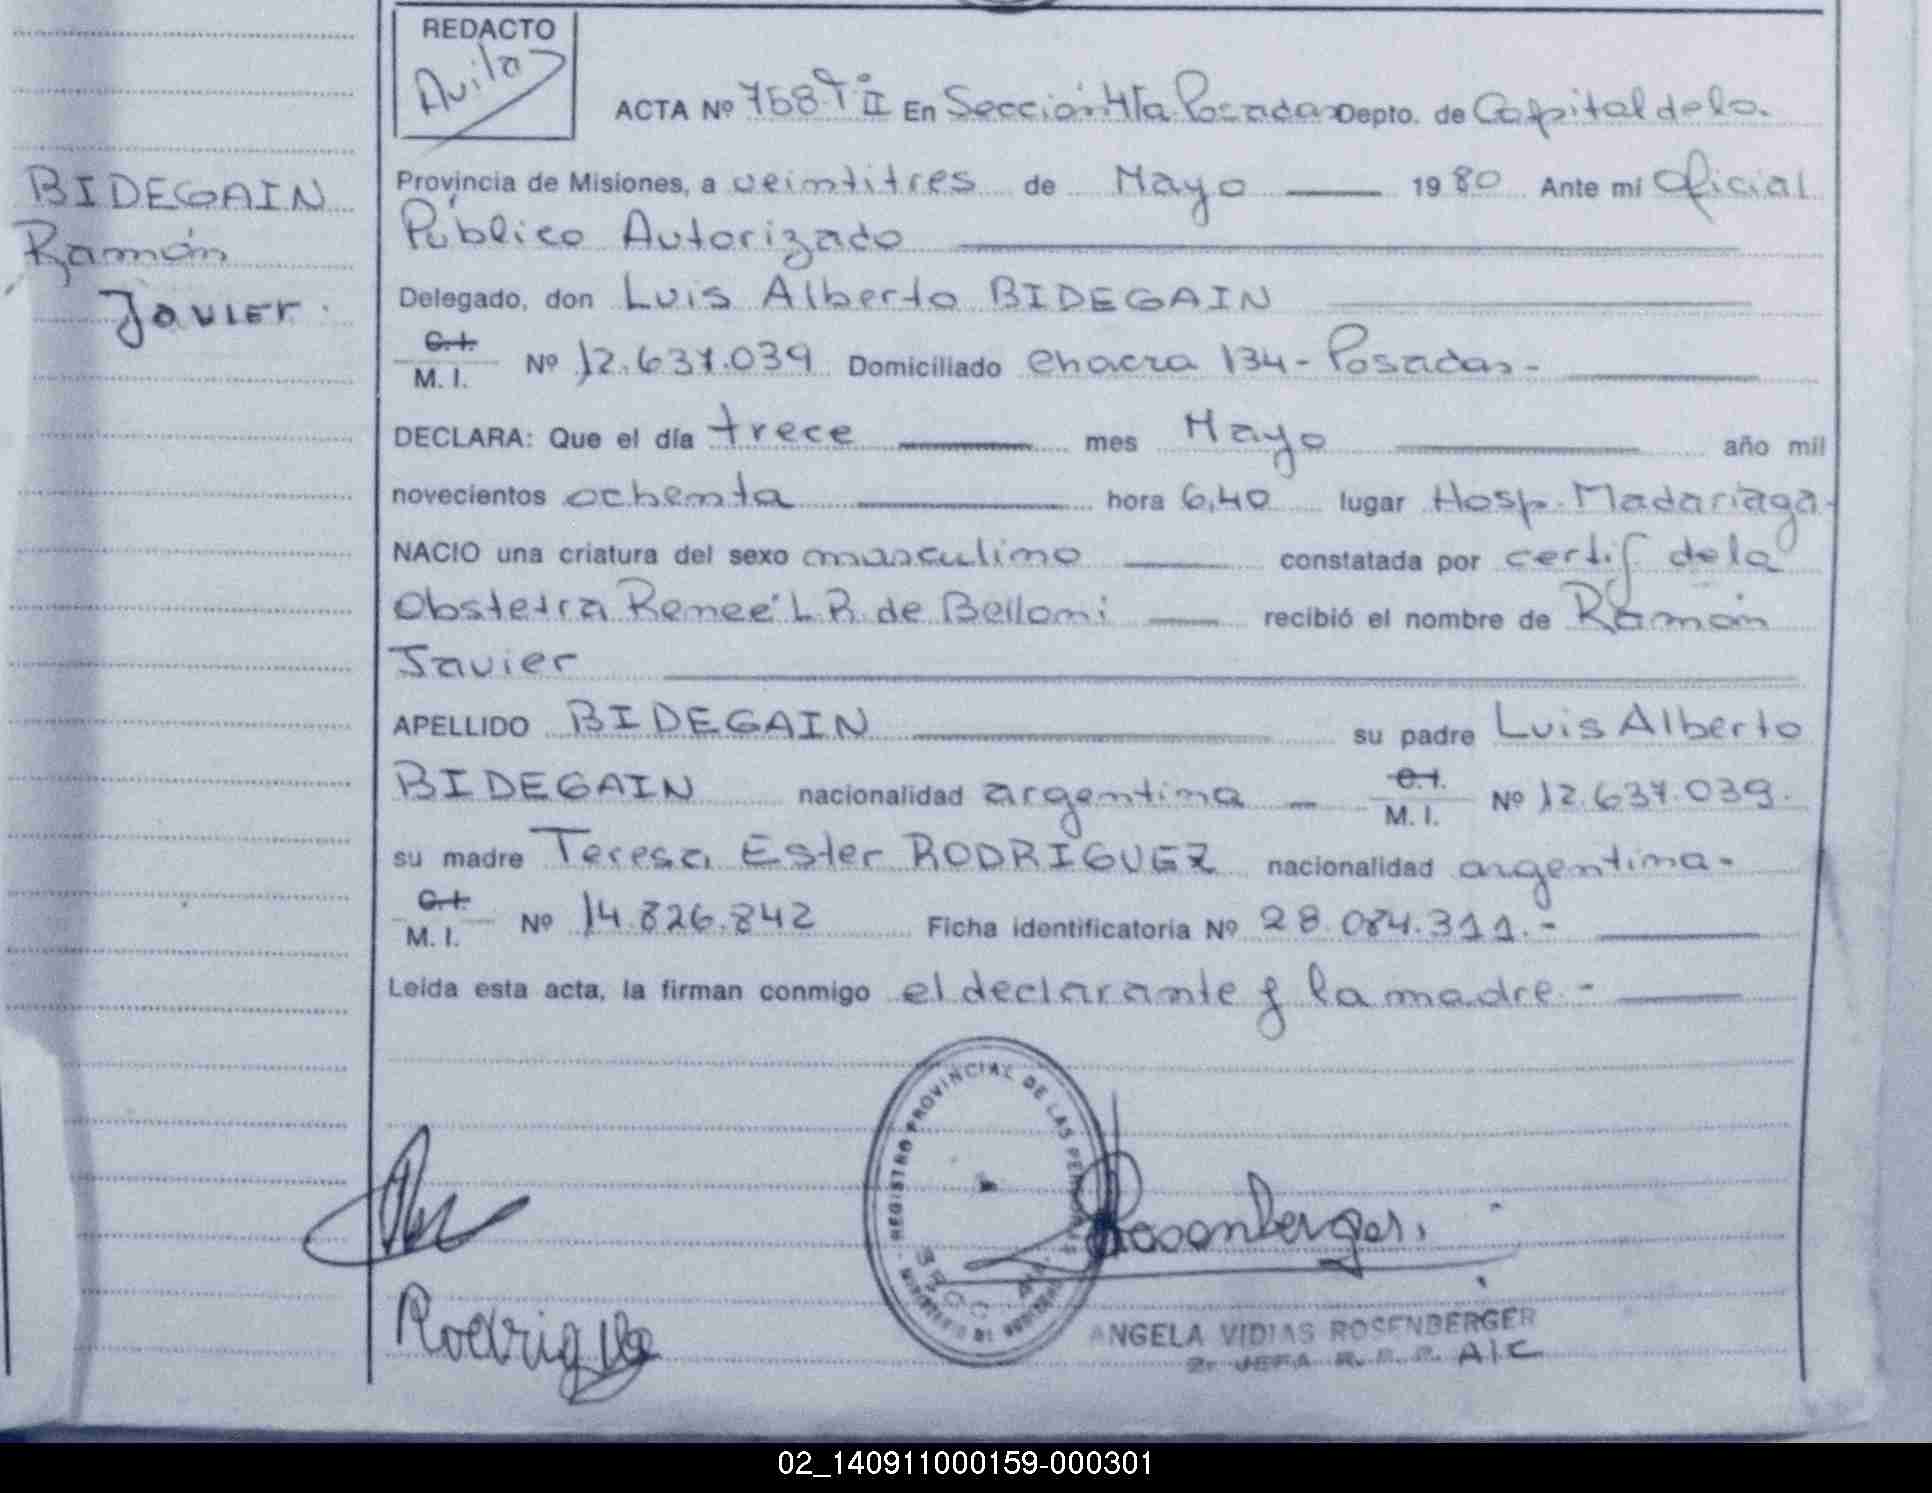 REDACTO
Avila
ACTA Nº 768 Tº II En Sección 4ta Posadas Depto. de Capital de la
BIDEGAIN
Provincia de Misiones, a veintitres de Mayo 1980 Ante mí Oficial
Ramón
Público Autorizado
Javier
Delegado, don Luis Alberto BIDEGAIN
C.I.
M. I. Nº 12.637.039 Domiciliado Chacra 134 - Posadas -
DECLARA: Que el día trece mes Mayo año mil
novecientos ochenta hora 6,40 lugar Hosp. Madariaga
NACIO una criatura del sexo masculino constatada por certif de la
Obstetra Reneé L R. de Belloni recibió el nombre de Ramón
Javier
APELLIDO BIDEGAIN su padre Luis Alberto
BIDEGAIN nacionalidad argentina - C.I.
M. I. Nº 12.637.039.
su madre Teresa Ester RODRIGUEZ nacionalidad argentina -
C.I.
M. I. Nº 14.826.842 Ficha identificatoria Nº 28.084.311.-
Leida esta acta, la firman conmigo el declarante y la madre.-
REGISTRO PROVINCIAL DE LAS PERSONAS
Rosenberger
Rodrigue
ANGELA VIDIAS ROSENBERGER
JEFA R. P. P. A/C
02_140911000159-000301